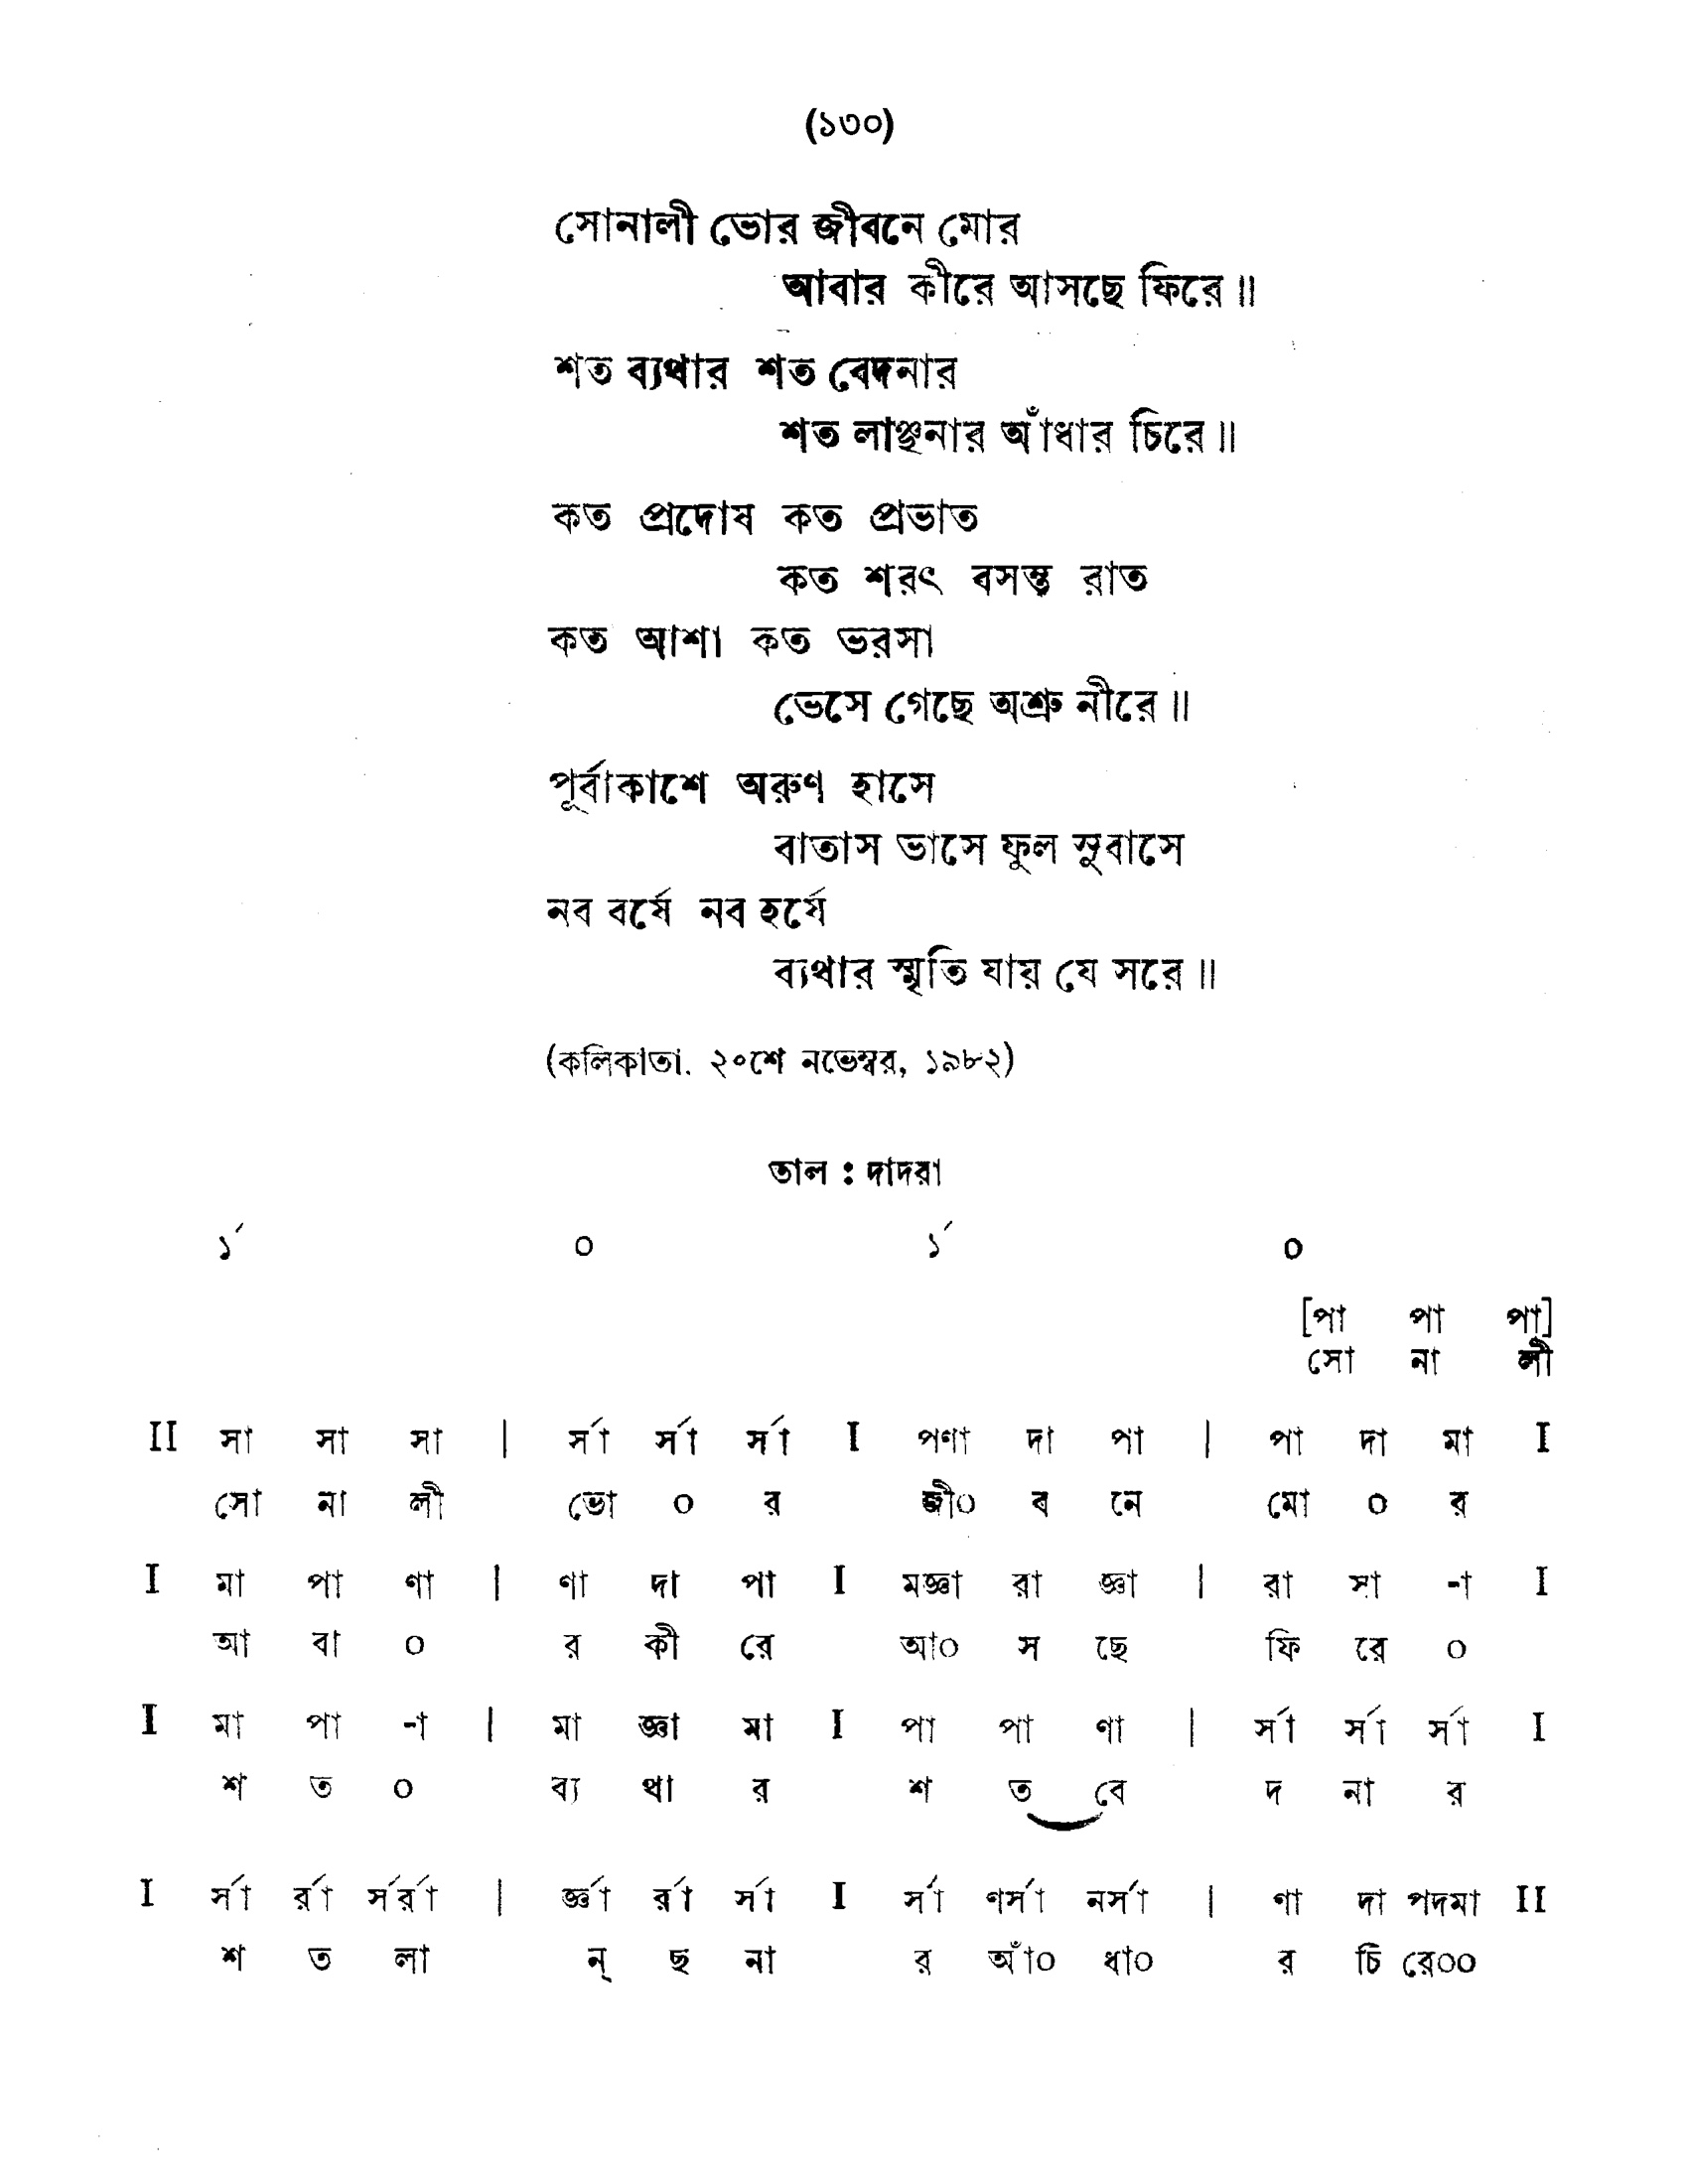 (১৩০)
সোনালী ভোর জীবনে মোর
আবার কীরে আসছে ফিরে॥
শত ব্যথার শত বেদনার
শত লাঞ্ছনার আঁধার চিরে॥
কত প্রদোষ কত প্রভাত
কত শরৎ বসন্ত রাত
কত আশা কত ভরসা
ভেসে গেছে অশ্রু নীরে॥
পূর্বাকাশে অরুণ হাসে
বাতাস ভাসে ফুল সুবাসে
নব বর্ষে নব হর্ষে
ব্যথার স্মৃতি যায় যে সরে॥
(কলিকাতা. ২০শে নভেম্বর, ১৯৮২)
তাল : দাদরা
১´ ০ ১´ ০
[পা পা পা]
সো না লী
II সা সা সা | র্সা র্সা র্সা I পণা দা পা | পা দা মা I
সো না লী ভো ০ র জী০ ব নে মো ০ র
I মা পা ণা | ণা দা পা I মজ্ঞা রা জ্ঞা | রা সা -া I
আ বা ০ র কী রে আ০ স ছে ফি রে ০
I মা পা -া | মা জ্ঞা মা I পা পা ণা | র্সা র্সা র্সা I
শ ত ০ ব্য থা র শ ত বে দ না র
I র্সা র্রা র্সর্রা | র্জ্ঞা র্রা র্সা I র্সা ণর্সা নর্সা | ণা দা পদমা II
শ ত লা ন্ ছ না র আঁ০ ধা০ র চি রে০০